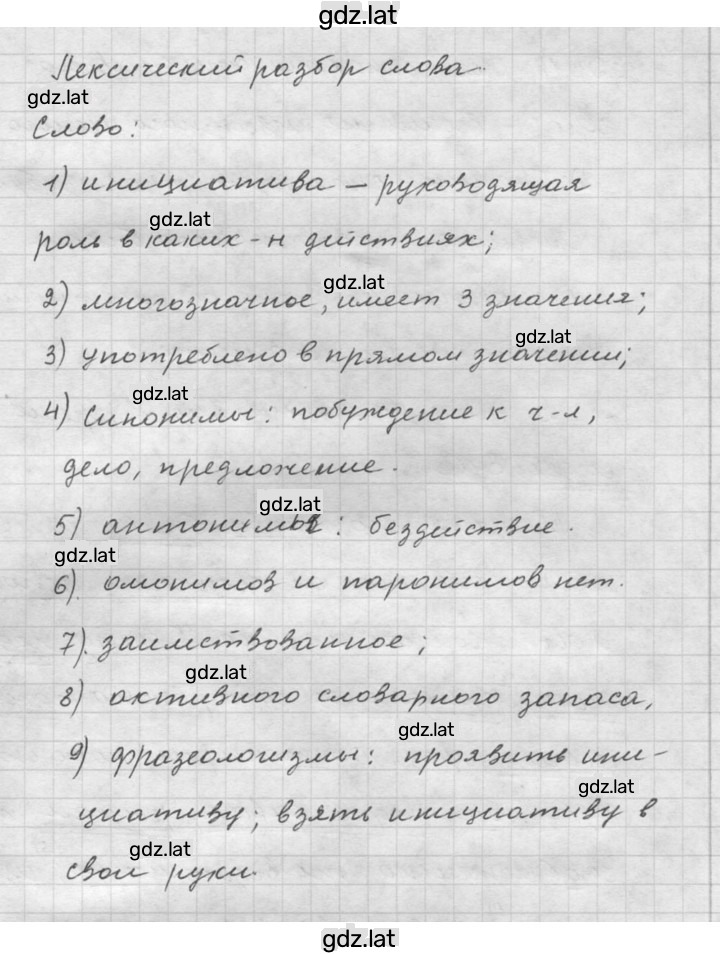 gdz.lat
Лексический разбор слова.
gdz.lat
Слово:
1) инициатива – руководящая
gdz.lat
роль в каких-н действиях;
gdz.lat
2) многозначное, имеет 3 значения;
gdz.lat
3) употреблено в прямом значении;
gdz.lat
4) синонимы: побуждение к ч-л,
дело, предложение.
gdz.lat
5) антонимы: бездействие.
gdz.lat
6). омонимов и паронимов нет.
7). заимствованное;
gdz.lat
8) активного словарного запаса,
gdz.lat
9) фразеологизмы: проявить ини-
gdz.lat
циативу; взять инициативу в
gdz.lat
свои руки.
gdz.lat